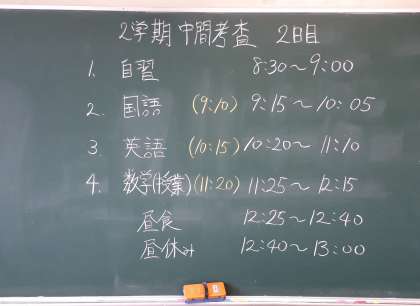 2学期 中間考査 2日目
1. 自習 8:30〜9:00
2. 国語 (9:10) 9:15〜10:05
3. 英語 (10:15) 10:20〜11:10
4. 数学(授業) (11:20) 11:25〜12:15
昼食 12:25〜12:40
昼休み 12:40〜13:00